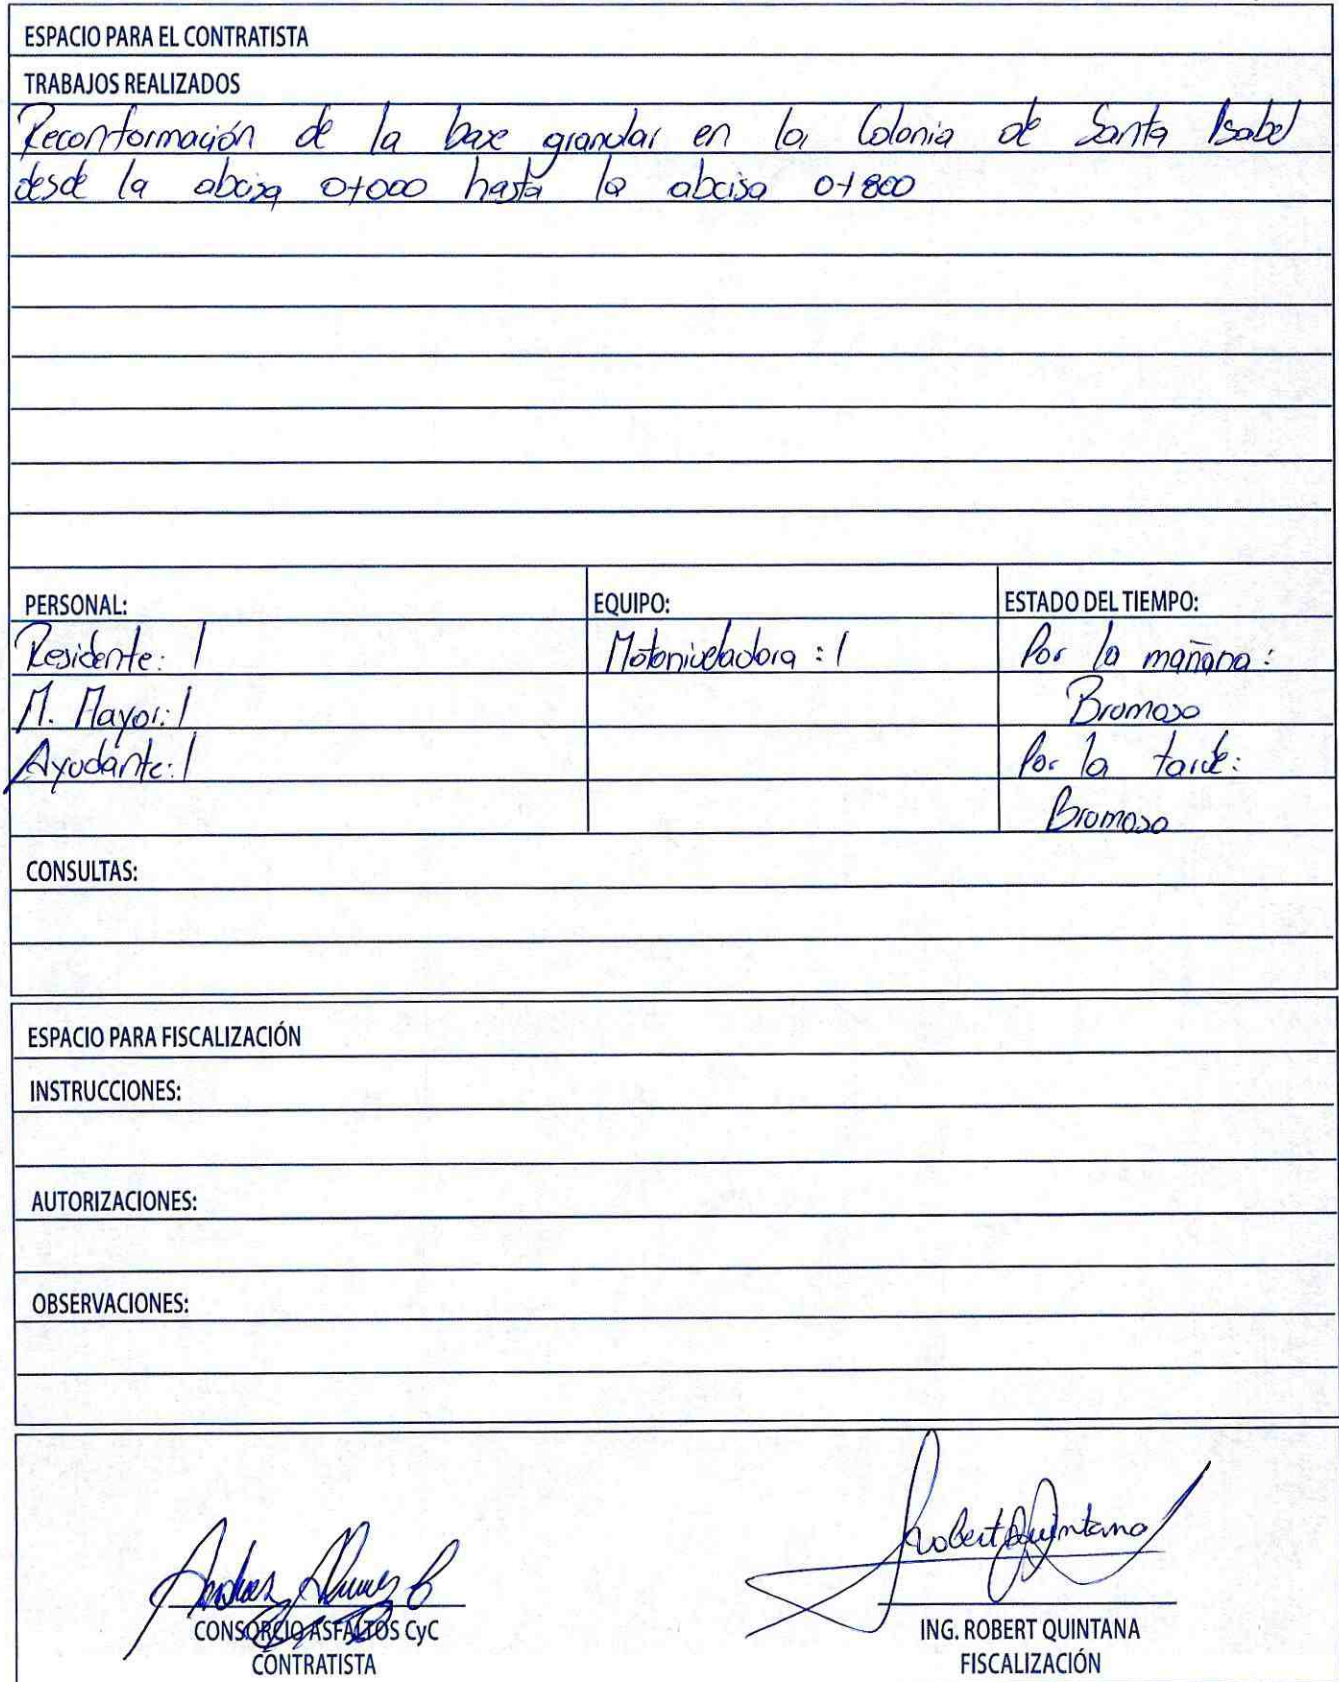 ESPACIO PARA EL CONTRATISTA
TRABAJOS REALIZADOS
Reconformación de la base granular en la Colonia de Santa Isabel
desde la abcisa 0+000 hasta la abcisa 0+800
PERSONAL:
Residente: 1
M. Mayor: 1
Ayudante: 1
EQUIPO:
Motoniveladora : 1
ESTADO DEL TIEMPO:
Por la mañana :
Bromoso
Por la tarde:
Bromoso
CONSULTAS:
ESPACIO PARA FISCALIZACIÓN
INSTRUCCIONES:
AUTORIZACIONES:
OBSERVACIONES:
CONSORCIO ASFALTOS CyC
CONTRATISTA
Robert Quintana
ING. ROBERT QUINTANA
FISCALIZACIÓN